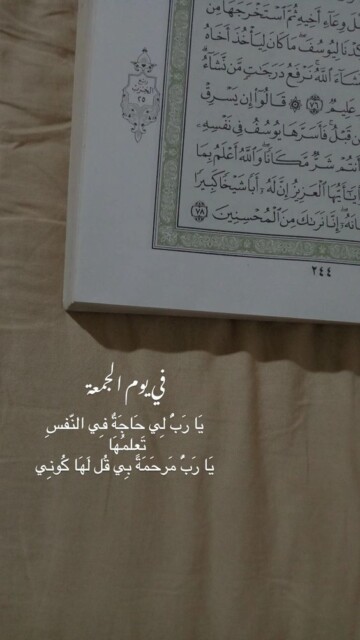 وِعَآءِ أَخِيهِ ثُمَّ ٱسْتَخْرَجَهَا مِن
كِدْنَا لِيُوسُفَ مَا كَانَ لِيَأْخُذَ أَخَاهُ
ٱللَّهُ نَرْفَعُ دَرَجَٰتٍ مَّن نَّشَآءُ
عَلِيمٌ ٧٦ قَالُوٓا۟ إِن يَسْرِقْ
قَبْلُ فَأَسَرَّهَا يُوسُفُ فِى نَفْسِهِۦ
أَنتُمْ شَرٌّ مَّكَانًا وَٱللَّهُ أَعْلَمُ بِمَا
يَٰٓأَيُّهَا ٱلْعَزِيزُ إِنَّ لَهُۥٓ أَبًا شَيْخًا كَبِيرًا
إِنَّا نَرَىٰكَ مِنَ ٱلْمُحْسِنِينَ ٧٨
الحزب
٢٥
٢٤٤
في يوم الجمعة
يَا رَبُ لِي حَاجَةٌ فِي النّفسِ
تَعلمُهَا
يَا رَبُ مَرحَمَةً بِي قُل لَهَا كُونِي